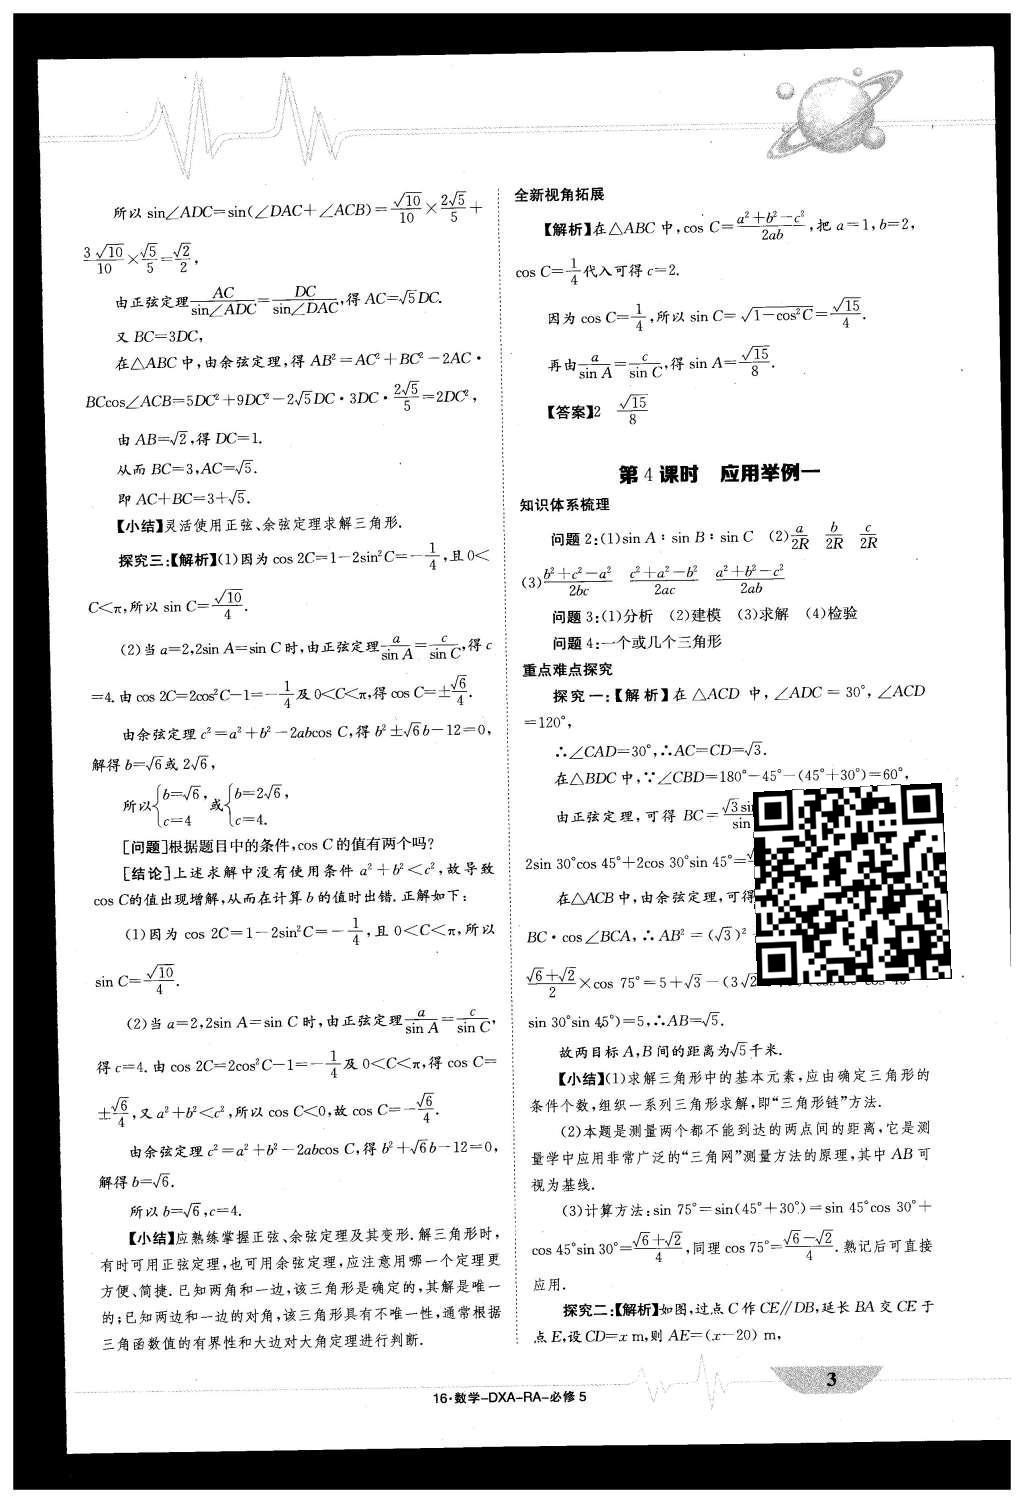 所以 sin∠ADC=sin(∠DAC+∠ACB)=√10/10×2√5/5+
3√10/10×√5/5=√2/2,
由正弦定理 AC/sin∠ADC=DC/sin∠DAC,得 AC=√5DC.
又 BC=3DC,
在△ABC 中,由余弦定理,得 AB²=AC²+BC²-2AC·
BCcos∠ACB=5DC²+9DC²-2√5DC·3DC·2√5/5=2DC²,
由 AB=√2,得 DC=1.
从而 BC=3,AC=√5.
即 AC+BC=3+√5.
【小结】灵活使用正弦、余弦定理求解三角形.
探究三:【解析】(1)因为 cos 2C=1-2sin²C=-1/4,且 0<
C<π,所以 sin C=√10/4.
(2)当 a=2,2sin A=sin C 时,由正弦定理 a/sin A=c/sin C,得 c
=4.由 cos 2C=2cos²C-1=-1/4及 0<C<π,得 cos C=±√6/4.
由余弦定理 c²=a²+b²-2abcos C,得 b²±√6b-12=0,
解得 b=√6或 2√6,
所以{b=√6,c=4 或{b=2√6,c=4.
[问题]根据题目中的条件,cos C 的值有两个吗?
[结论]上述求解中没有使用条件 a²+b²<c²,故导致
cos C的值出现增解,从而在计算 b 的值时出错.正解如下:
(1)因为 cos 2C=1-2sin²C=-1/4,且 0<C<π,所以
sin C=√10/4.
(2)当 a=2,2sin A=sin C 时,由正弦定理 a/sin A=c/sin C,
得 c=4.由 cos 2C=2cos²C-1=-1/4及 0<C<π,得 cos C=
±√6/4,又 a²+b²<c²,所以 cos C<0,故 cos C=-√6/4.
由余弦定理 c²=a²+b²-2abcos C,得 b²+√6b-12=0,
解得 b=√6.
所以 b=√6,c=4.
【小结】应熟练掌握正弦、余弦定理及其变形.解三角形时,
有时可用正弦定理,也可用余弦定理,应注意用哪一个定理更
方便、简捷.已知两角和一边,该三角形是确定的,其解是唯一
的;已知两边和一边的对角,该三角形具有不唯一性,通常根据
三角函数值的有界性和大边对大角定理进行判断.
全新视角拓展
【解析】在△ABC 中,cos C=a²+b²-c²/2ab,把 a=1,b=2,
cos C=1/4代入可得 c=2.
因为 cos C=1/4,所以 sin C=√1-cos²C=√15/4.
再由 a/sin A=c/sin C,得 sin A=√15/8.
【答案】2 √15/8
第 4 课时 应用举例一
知识体系梳理
问题 2:(1)sin A∶sin B∶sin C (2)a/2R b/2R c/2R
(3)b²+c²-a²/2bc c²+a²-b²/2ac a²+b²-c²/2ab
问题 3:(1)分析 (2)建模 (3)求解 (4)检验
问题 4:一个或几个三角形
重点难点探究
探究一:【解析】在 △ACD 中,∠ADC=30°,∠ACD
=120°,
∴∠CAD=30°,∴AC=CD=√3.
在△BDC 中,∵∠CBD=180°-45°-(45°+30°)=60°,
由正弦定理,可得 BC=√3si
sin
2sin 30°cos 45°+2cos 30°sin 45°=
在△ACB 中,由余弦定理,可得
BC·cos∠BCA,∴AB²=(√3)²
√6+√2/2×cos 75°=5+√3-(3√2
sin 30°sin 45°)=5,∴AB=√5.
故两目标 A,B 间的距离为√5千米.
【小结】(1)求解三角形中的基本元素,应由确定三角形的
条件个数,组织一系列三角形求解,即“三角形链”方法.
(2)本题是测量两个都不能到达的两点间的距离,它是测
量学中应用非常广泛的“三角网”测量方法的原理,其中 AB 可
视为基线.
(3)计算方法:sin 75°=sin(45°+30°)=sin 45°cos 30°+
cos 45°sin 30°=√6+√2/4,同理 cos 75°=√6-√2/4.熟记后可直接
应用.
探究二:【解析】如图,过点 C 作 CE∥DB,延长 BA 交 CE 于
点 E,设 CD=x m,则 AE=(x-20) m,
16·数学-DXA-RA-必修 5
3